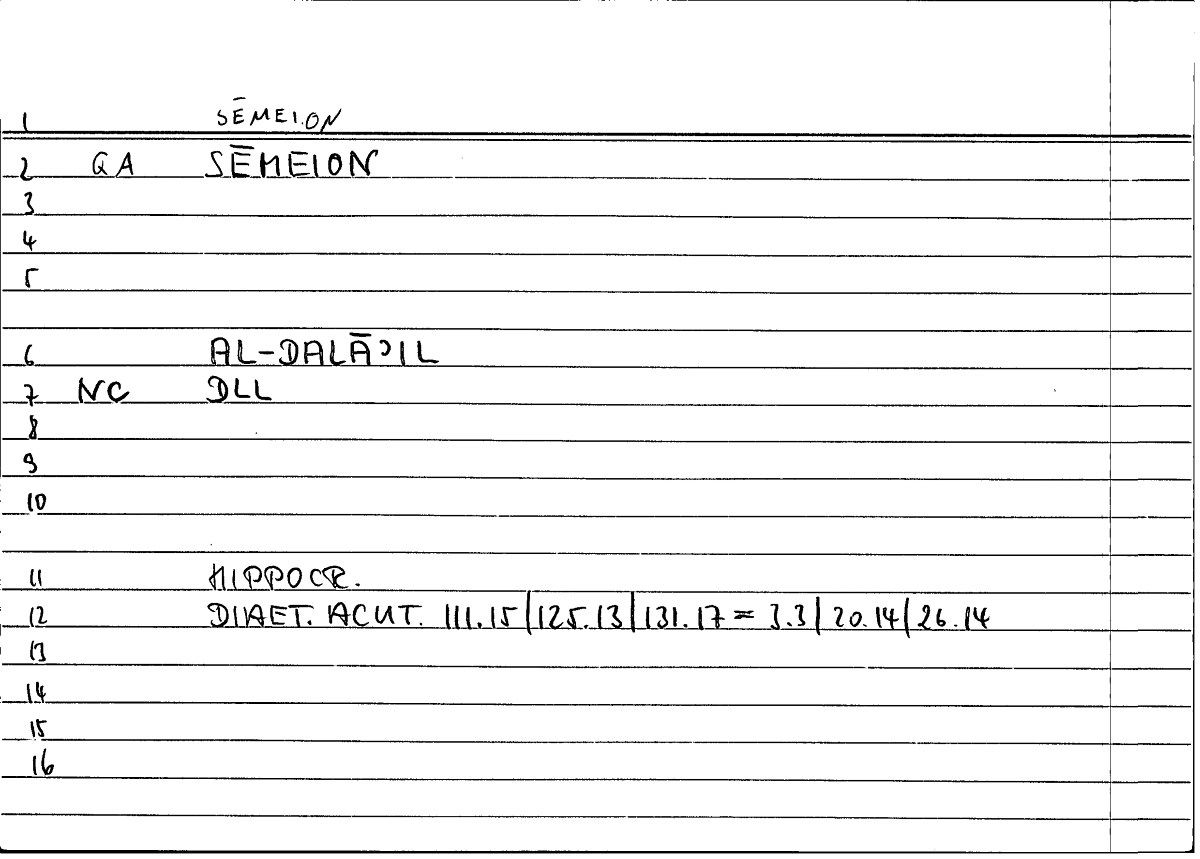 1 SĒMEION
2 QA SĒMEION
3
4
5
6 AL-DALĀʾIL
7 NC DLL
8
9
10
11 HIPPOCR.
12 DIAET. ACUT. 111.15|125.13|131.17 = 3.3|20.14|26.14
13
14
15
16